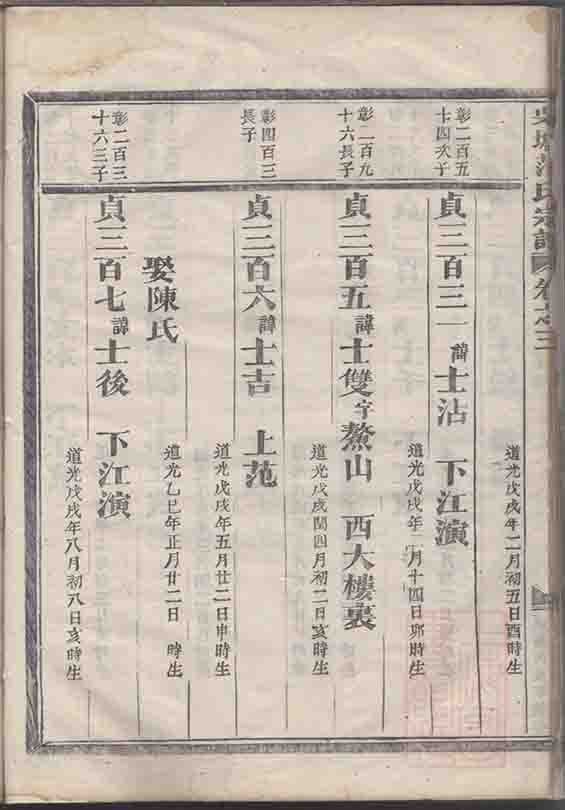 范氏宗譜 卷之三
道光戊戌年二月初五日酉時生
彰二百五
十四次子
貞三百三 諱士沾 下江演
道光戊戌年二月十四日卯時生
彰二百九
十六長子
貞三百五諱士雙字鰲山 西大樓裏
道光戊戌閏四月初二日亥時生
彰四百三
長子
貞三百六諱士吉 上范
道光戊戌年五月廿二日申時生
娶陳氏
道光乙巳年正月廿二日 時生
彰二百三
十六三子
貞三百七諱士後 下江演
道光戊戌年八月初八日亥時生